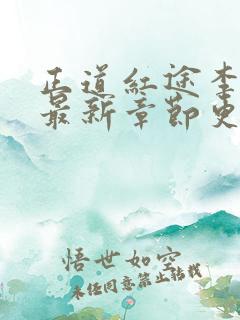 正道红途李
最新章节更
悟世如空
未经同意禁止转载